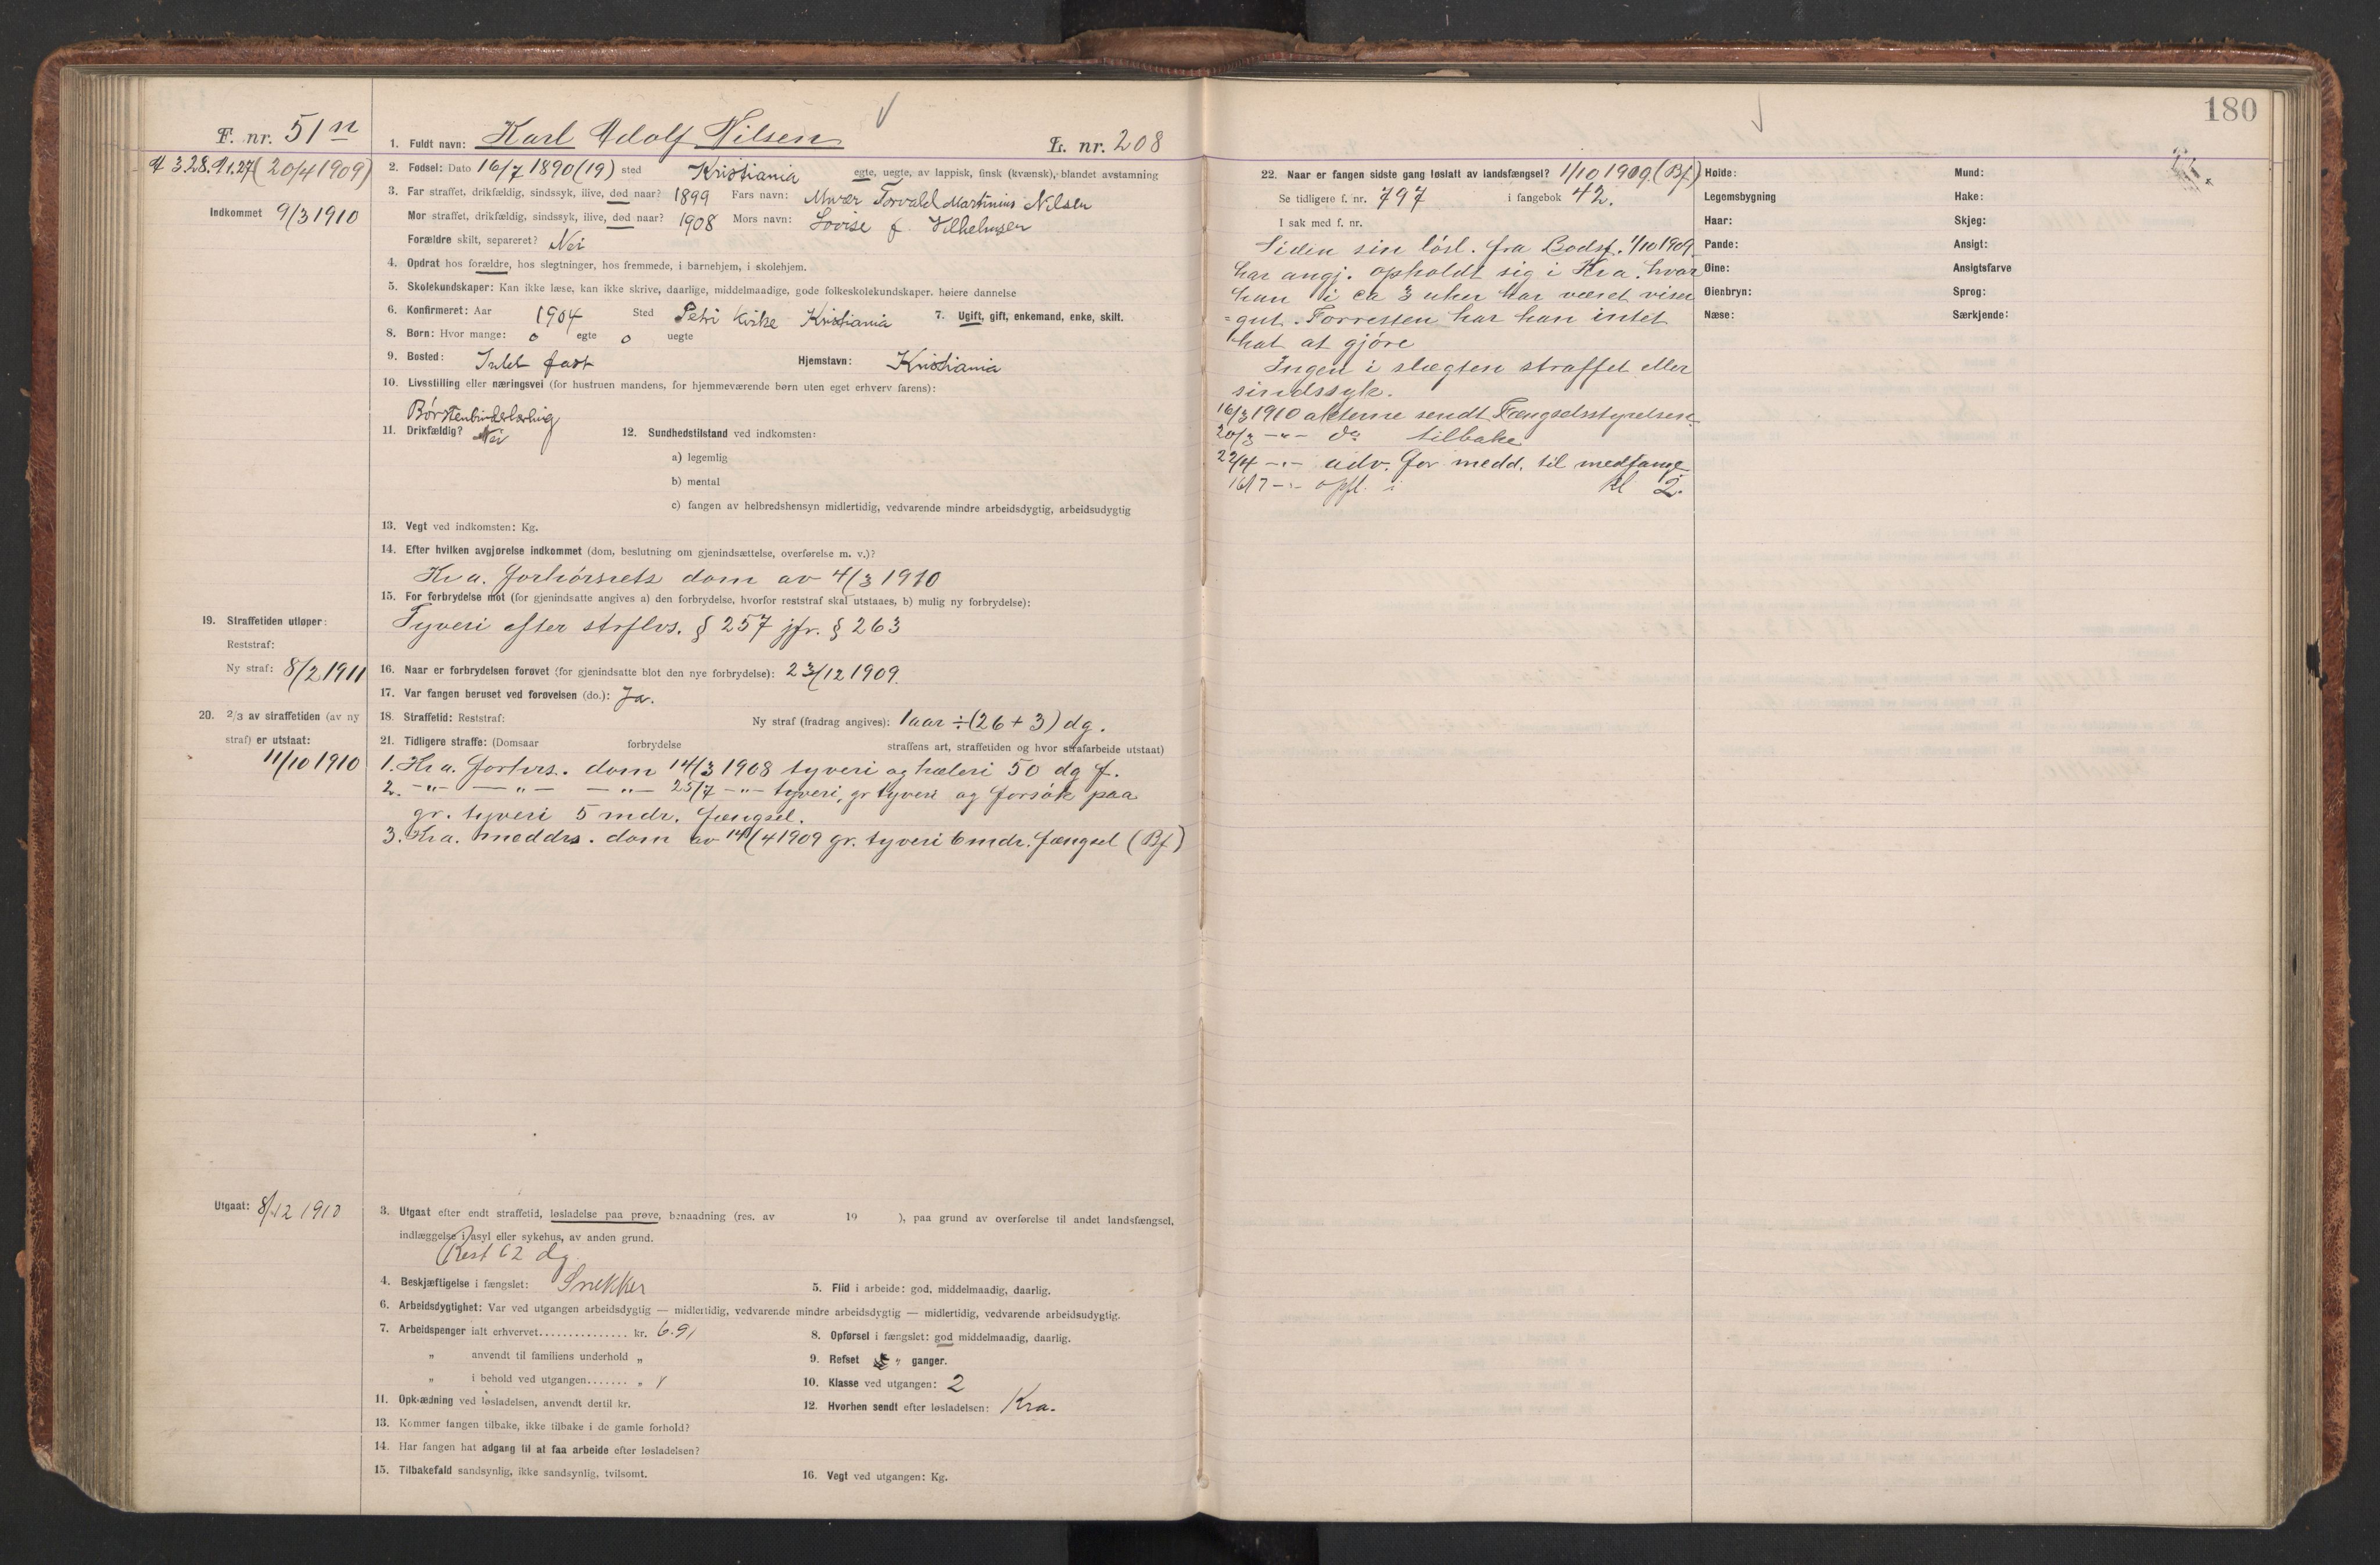 180
F. nr. 51n
1. Fuldt navn: Karl Adolf Nilsen
L. nr. 208
(20/4 1909)
2. Fødsel: Dato 16/7 1890 (19) sted Kristiania egte, uegte, av lappisk, finsk (kvænsk), blandet avstamning
Indkommet 9/3 1910
3. Far straffet, drikfældig, sindssyk, ilive, død naar? 1899 Fars navn: Murer Torvald Martinius Nilsen
Mor straffet, drikfældig, sindssyk, ilive, død naar? 1908 Mors navn: Lovise f. Vilhelmsen
Forældre skilt, separeret? Nei
4. Opdrat hos forældre, hos slegtninger, hos fremmede, i barnehjem, i skolehjem.
5. Skolekundskaper: Kan ikke læse, kan ikke skrive, daarlige, middelmaadige, gode folkeskolekundskaper. høiere dannelse
6. Konfirmeret: Aar 1904 Sted Petri Kirke Kristiania 7. Ugift, gift, enkemand, enke, skilt.
8. Børn: Hvor mange: 0 egte 0 uegte
9. Bosted: Intet fast Hjemstavn: Kristiania
10. Livsstilling eller næringsvei (for hustruen mandens, for hjemmeværende børn uten eget erhverv farens):
Børstenbinderlærling
11. Drikfældig? Nei 12. Sundhedstilstand ved indkomsten:
a) legemlig
b) mental
c) fangen av helbredshensyn midlertidig, vedvarende mindre arbeidsdygtig, arbeidsudygtig
13. Vegt ved indkomsten: Kg.
14. Efter hvilken avgjørelse indkommet (dom, beslutning om gjenindsættelse, overførelse m. v.)?
Kra. forhørsrets dom av 4/3 1910
15. For forbrydelse mot (for gjenindsatte angives a) den forbrydelse, hvorfor reststraf skal utstaaes, b) mulig ny forbrydelse):
Tyveri efter strflvs. § 257 jfr. § 263
19. Straffetiden utløper:
Reststraf:
Ny straf: 8/2 1911
16. Naar er forbrydelsen forøvet (for gjenindsatte blot den nye forbrydelse): 23/12 1909.
17. Var fangen beruset ved forøvelsen (do.): Ja.
20. 2/3 av straffetiden (av ny
straf) er utstaat:
11/10 1910
18. Straffetid: Reststraf: Ny straf (fradrag angives): 1 aar ÷ (26 + 3) dg.
21. Tidligere straffe: (Domsaar forbrydelse straffens art, straffetiden og hvor strafarbeide utstaat)
1. Kra. forhrs. dom 14/3 1908 tyveri og hæleri 50 dg f.
2. -"- -"- -"- 25/7 -"- tyveri, gr tyveri og forsøk paa
gr. tyveri 5 mdr. fængsel.
3. Kra. meddrs. dom av 14/4 1909 gr. tyveri 6 mdr. fængsel (Bf)
Utgaat: 8/12 1910
3. Utgaat efter endt straffetid, løsladelse paa prøve, benaadning (res. av 19 ), paa grund av overførelse til andet landsfængsel,
indlæggelse i asyl eller sykehus, av anden grund.
Rest 62 dg
4. Beskjæftigelse i fængslet: Snekker 5. Flid i arbeide: god, middelmaadig, daarlig.
6. Arbeidsdygtighet: Var ved utgangen arbeidsdygtig — midlertidig, vedvarende mindre arbeidsdygtig — midlertidig, vedvarende arbeidsudygtig.
7. Arbeidspenger ialt erhvervet............... kr. 6.91 8. Opførsel i fængslet: god middelmaadig, daarlig.
" anvendt til familiens underhold " 9. Refset " ganger.
" i behold ved utgangen....... " 10. Klasse ved utgangen: 2
11. Opklædning ved løsladelsen, anvendt dertil kr. 12. Hvorhen sendt efter løsladelsen: Kra.
13. Kommer fangen tilbake, ikke tilbake i de gamle forhold?
14. Har fangen hat adgang til at faa arbeide efter løsladelsen?
15. Tilbakefald sandsynlig, ikke sandsynlig, tvilsomt. 16. Vegt ved utgangen: Kg.
22. Naar er fangen sidste gang løslatt av landsfængsel? 1/10 1909. (Bf.)
Se tidligere f. nr. 797 i fangebok 42.
I sak med f. nr.
Siden sin løsl. fra Bodsf. 1/10 1909
har angj. opholdt sig i Kra. hvor
han i ca 3 uker har været viser
=gut. Forresten har han intet
hat at gjøre
Ingen i slægten straffet eller
sindssyk.
16/3 1910 akterne sendt Fængselsstyrelsen
20/3 -"- do tilbake
22/4 -"- adv. for medd. til medfange
16/7 -"- opfl. i kl 2.
Høide:
Legemsbygning
Haar:
Pande:
Øine:
Øienbryn:
Næse:
Mund:
Hake:
Skjeg:
Ansigt:
Ansigtsfarve
Sprog:
Særkjende: